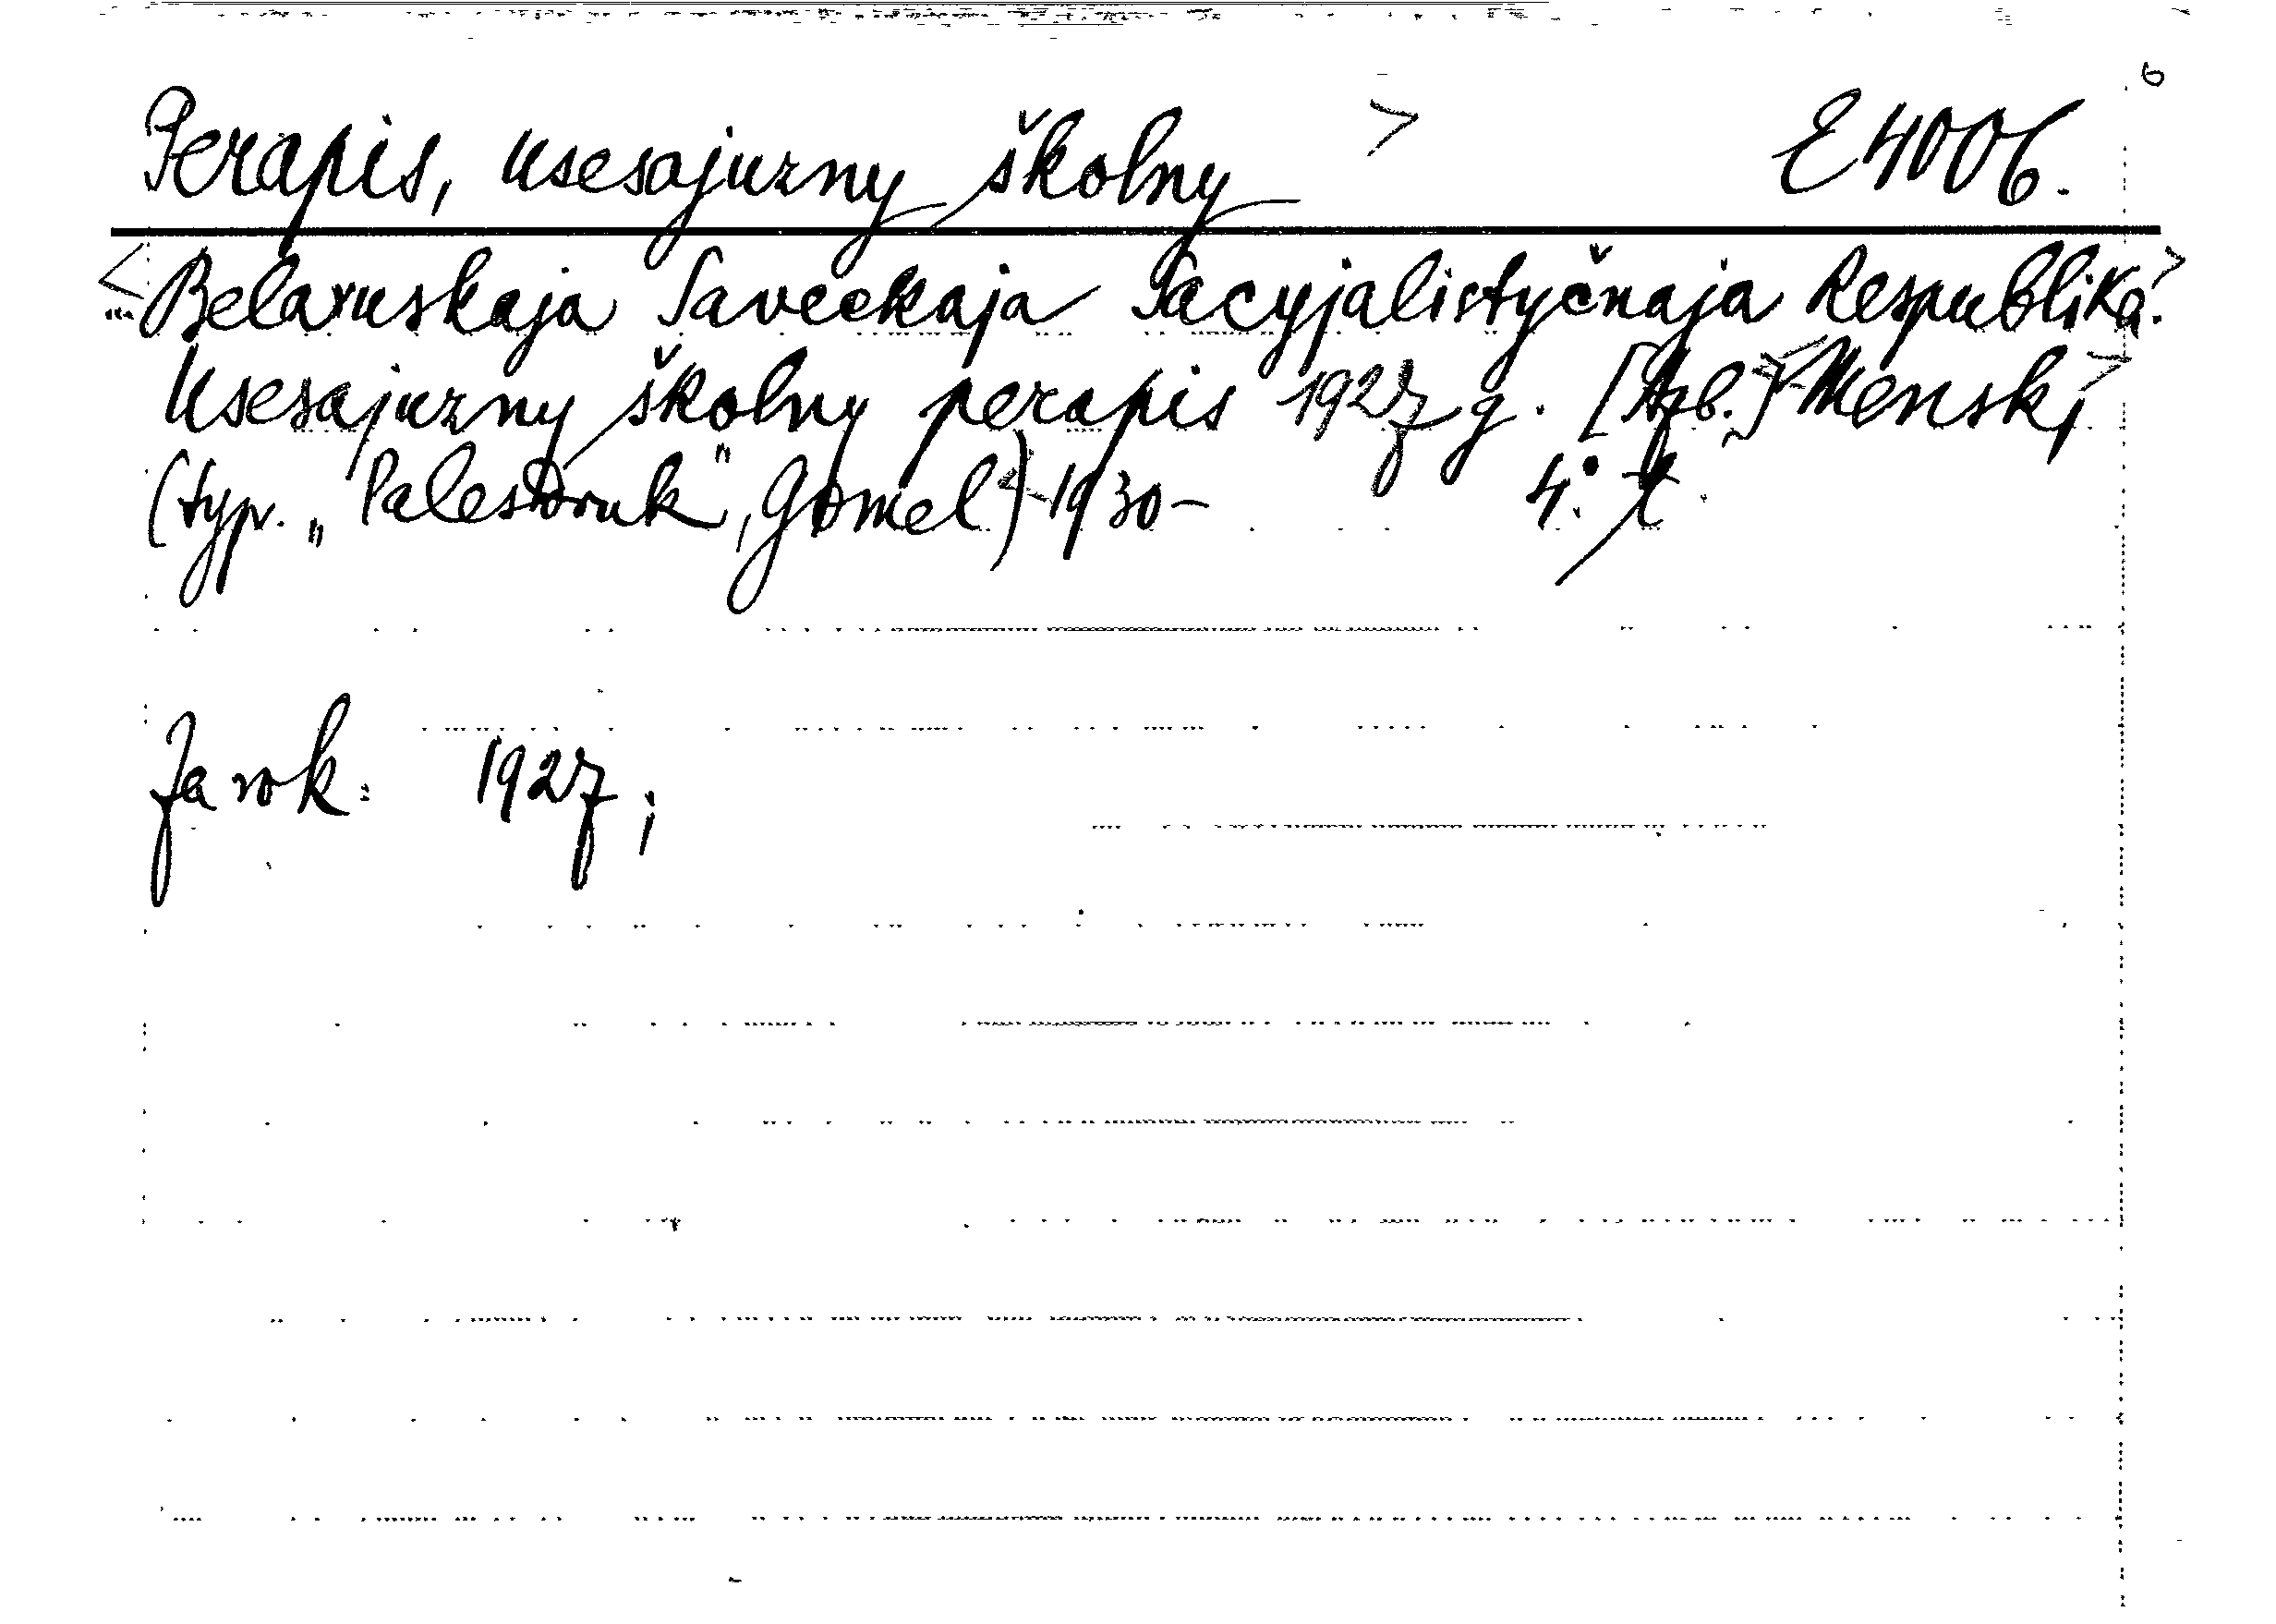 Perapis, usesajuzny školny > E 4006.
<"Belaruskaja Saveckaja Sacyjalistyčnaja Respublika.>
Usesajuzny školny perapis 1927 g. [Azb.] <Mensk,>
(typ. „Palesdruk", Gomel) 1930– 4°.
Za rok: 1927;